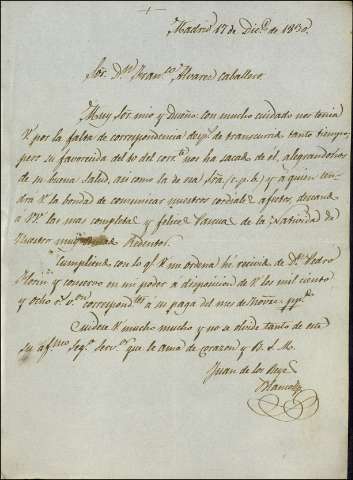 Madrid 17 de Dic.e de 1830.
Sor. Dn. Fran.co Alvarez Caballero.
Muy Sor. mio y Dueño: con mucho cuidado nos tenia
V. por la falta de correspondencia desp.s de transcurrido tanto tiempo;
pero su favorecida del 10 del corr.te nos ha sacado de él, alegrandonos
de su buena salud, asi como la de esa Sra (c.p.b.) y a quien ten
drá V. la bondad de comunicar nuestros cordiales afectos, deseando
a VV. las mas completas y felices Pascuas de la Natividad de
Nuestro Redentor.
Cumpliendo con lo q.e V. me ordena hé recivido de Dn. Pedro
y conservo en mi poder a disposicion de V. los mil ciento
y ocho r.s v.n correspond.tes a su paga del mes de Novre. pp.do
Cuidese V. mucho mucho y no se olvide tanto de este
su af.mo Seg.o Serv.or que le ama de corazon y B. S. M.
Juan de los Reyes
Blanco